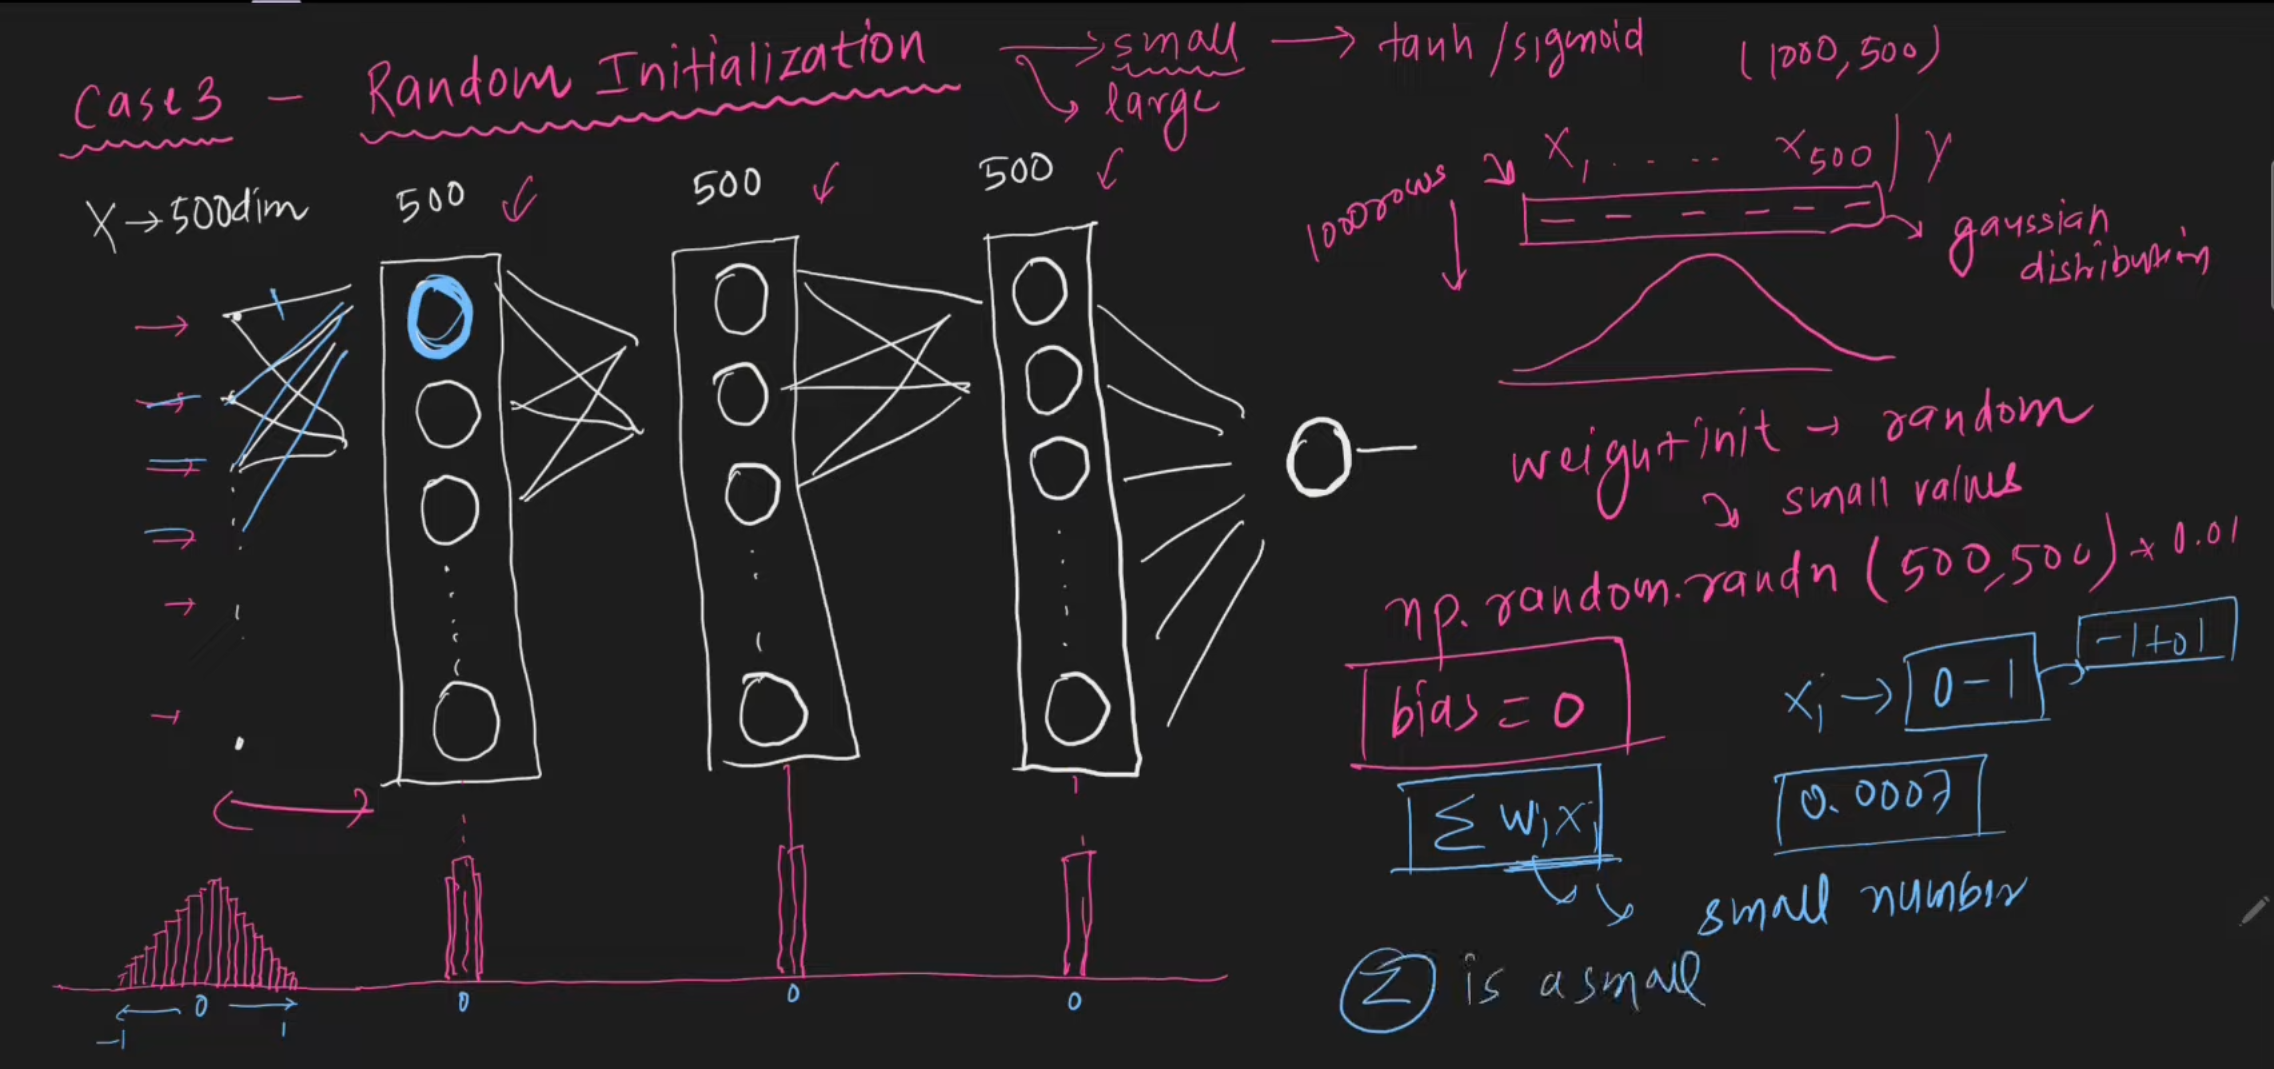 Case 3 - Random Initialization → small → tanh/sigmoid
large
(1000, 500)
X → 500dim
500
500
500
1000 rows
X1 ..... X500 | y
gaussian
distribution
weight init → random
small values
np.random.randn (500,500) * 0.01
bias = 0
xi → 0 - 1
-1 to 1
Σ wixi
0.0007
small number
Z is a small
-1
0
1
0
0
0